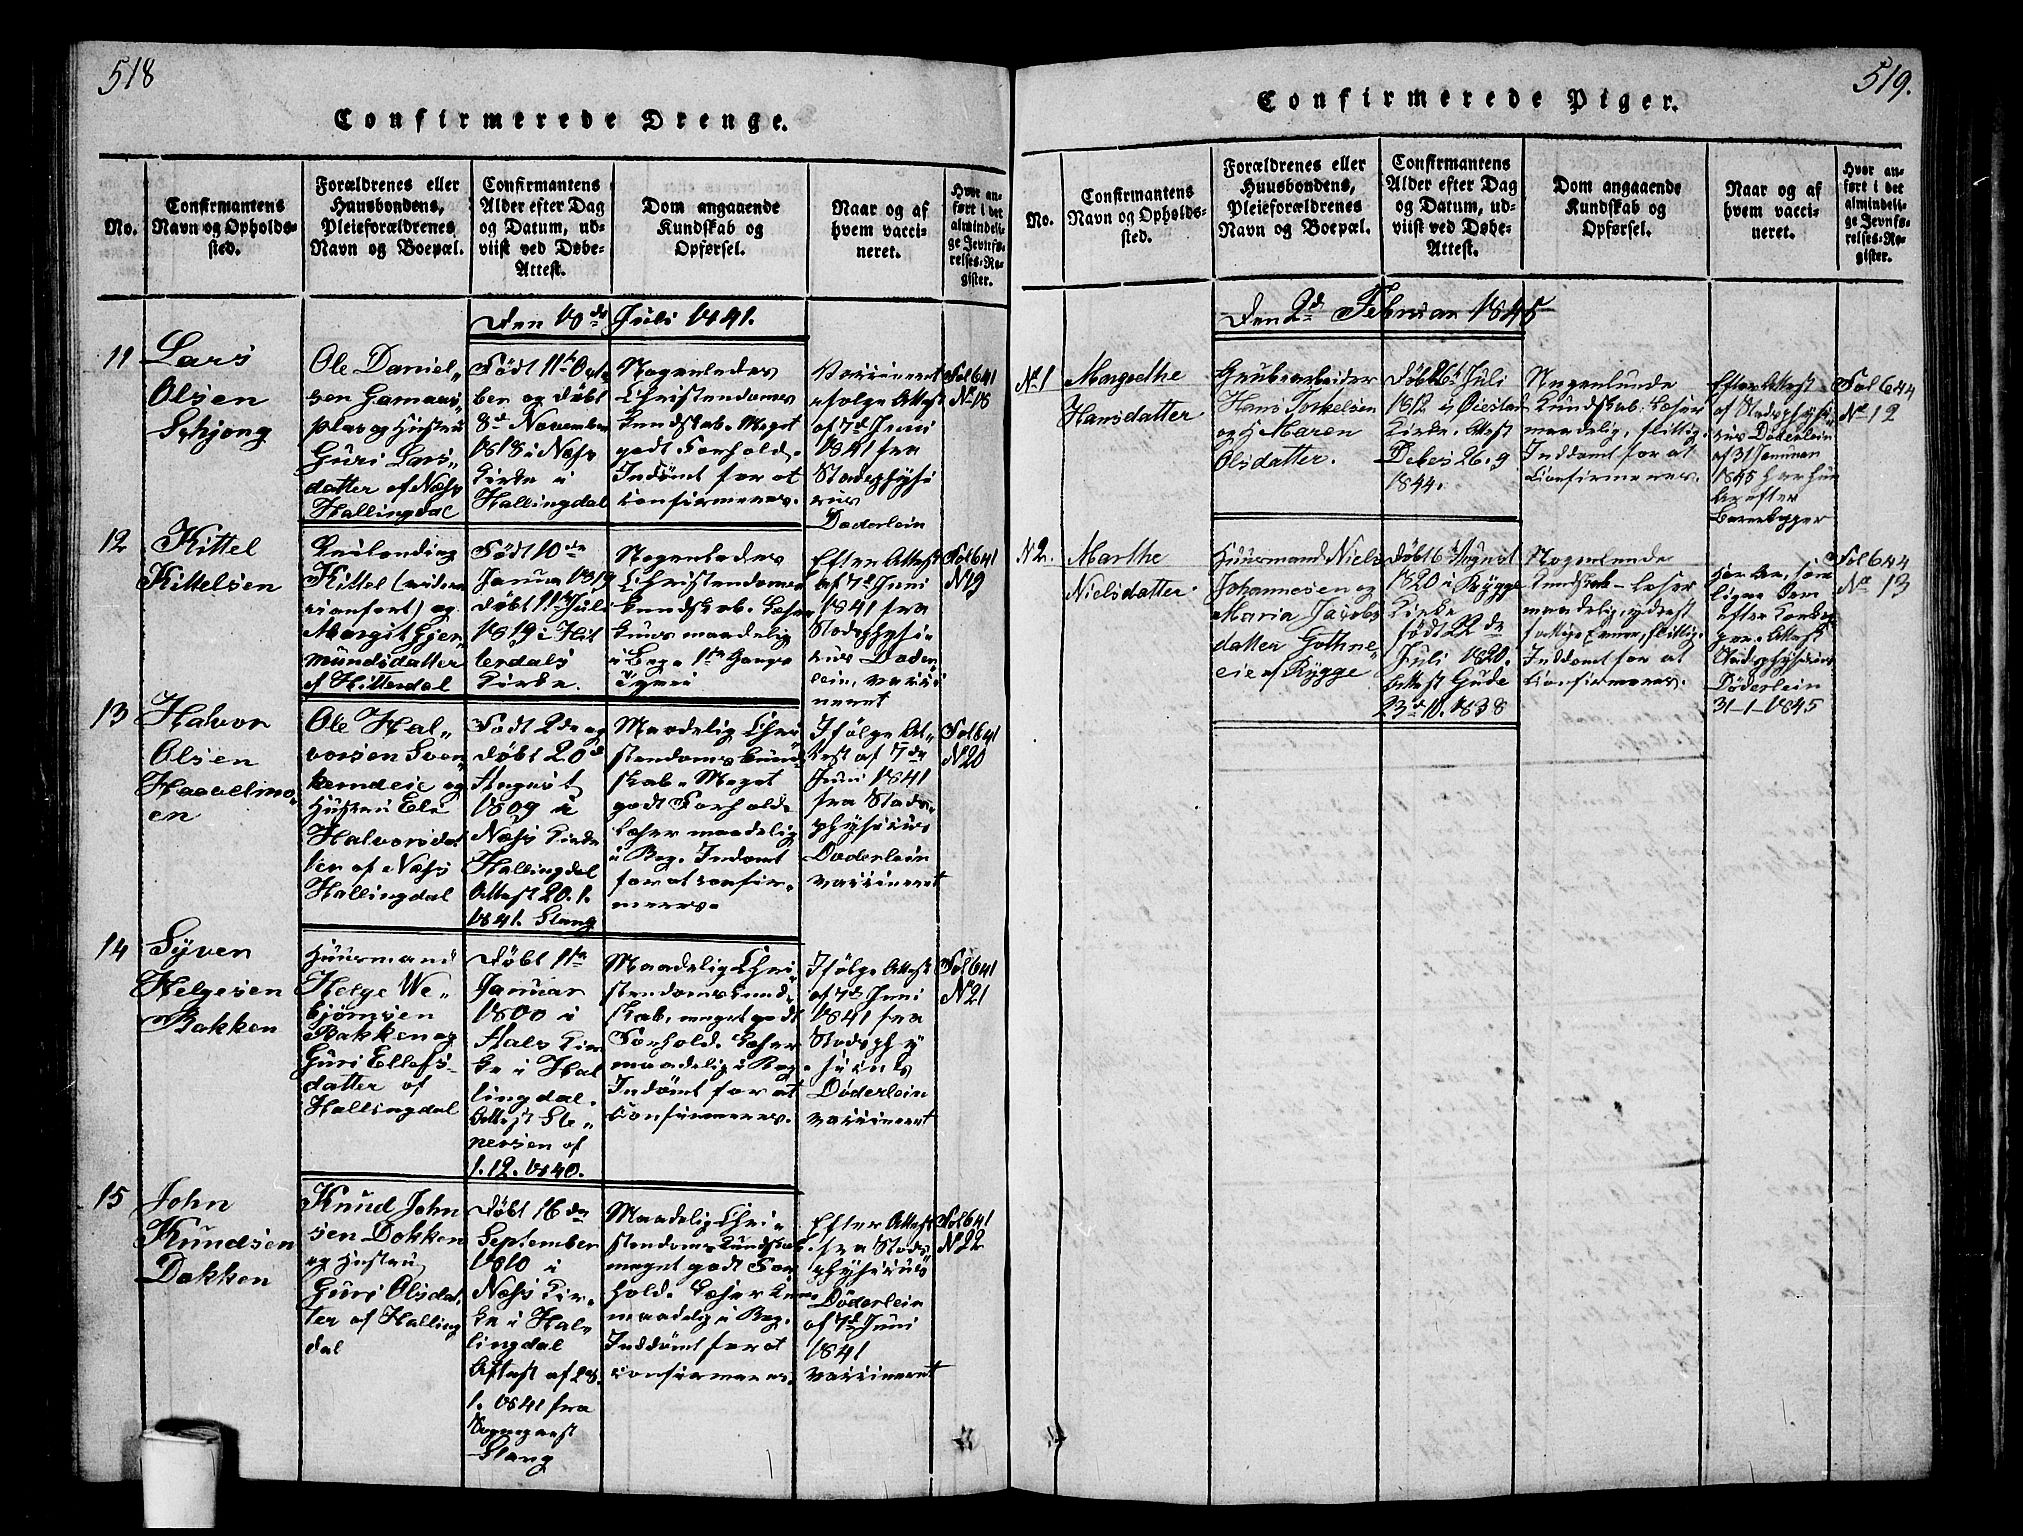 518
Confirmerede Drenge.
No.
Confirmantens
Navn og Opholds-
sted.
Forældrenes eller
Huusbondens,
Pleieforældrenes
Navn og Boepæl.
Confirmantens
Alder efter Dag
og Datum, ud-
viist ved Døbe-
Attest.
Dom angaaende
Kundskab og
Opførsel.
Naar og af
hvem vacci-
neret.
Hvor an-
ført i det
almindeli-
ge Jevnfø-
relses-Re-
gister.
Den 18de Juli 1841.
11
Lars
Olsen
Schjong
Ole Daniel-
sen Gamaas-
plas og Hustru
Guri Lars-
datter af Næss
Hallingdal
Født 11te Octo-
ber og døbt
8de November
1818 i Næss
Kirke i
Hallingdal
Nogenledes
Christendoms
Kundskab. Meget
godt Forhold.
Inddømt for at
confirmeres.
Vaccineret
ifølge Attest
af 7de Juni
1841 fra
Stadsphysi-
cus
Døderlein
Fol 641
No 18
12
Kittel
Kittelsen
Kittel
og
Margit Gjer-
mundsdatter
af Hitterdal
Født 10de
Januar 1819
døbt 11te Juli
1819 i Hit
terdals
Kirke.
Nogenledes
Christendoms
Kundskab. Læser
maadelig
i Bog.
Efter Attest
af 7de Juni
1841 fra
Stadsphysi-
cus Døder-
lein, vacci
neret
Fol 641
No 19
13
Halvor
Olsen
Haavelmo-
en
Ole Hal-
vorsen Sven-
kerudeie og
Hustru Eli
Halvorsdat
ter af Næss
Hallingdal
Født 2de og
døbt 20de
August
1809 i
Næss Kirke
Hallingdal
Attest 20.1.
1841. Stang
Maadelig Chri
stendoms Kund-
skab. Meget
godt Forhold.
Læser maadelig
i Bog. Inddømt
for at confir-
meres.
Ifølge At-
test af 7de
Juni 1841
fra Stads-
physicus
Døderlein
vaccineret
Fol 641
No 20
14
Syver
Helgesen
Bakken
Huusmand
Helge We-
bjørnsen
Bakken og
Guri Ellefs-
datter af
Hallingdal
Døbt 11te
Januar
1800 i
Aals Kir
ke i Hal
lingdal.
Attest Ste-
nersen af
1.12.1840.
Maadelig Chri-
stendoms Kund-
skab, meget godt
Forhold. Læser
maadelig i Bog.
Inddømt for at
confirmeres.
Ifølge Attest
af 7de Juni
1841 fra
Stadsphy
sicus
Døderlein
vaccineret
Fol 641
No 21
15
John
Knudsen
Dokken
Knud John
sen Dokken
og Hustru
Guri Olsdat
ter af Halling
dal
Døbt 16de
September
1810 i
Næss Kir-
ke i Hal-
lingdal
Attest af 28.
1. 1841 fra
Sogneprest
Stang
Maadelig Chri-
stendoms Kundskab
meget godt For
hold. Læser kun
maadelig i Bog.
Inddømt for at
confirmeres.
Efter Attest
fra Stads
physicus
Døderlein
af 7de Juni
1841
vaccineret
Fol 641
No 22
519.
Confirmerede Piger.
No.
Confirmantens
Navn og Opholds-
sted.
Forældrenes eller
Huusbondens,
Pleieforældrenes
Navn og Boepæl.
Confirmantens
Alder efter Dag
og Datum, ud-
viist ved Døbe-
Attest.
Dom angaaende
Kundskab og
Opførsel.
Naar og af
hvem vacci-
neret.
Hvor an-
ført i det
almindeli-
ge Jevnfø-
relses-Re-
gister.
Den 2de Februar 1845
No 1
Margrethe
Hansdatter
Grubearbeider
Hans Torkelsen
og Maren
Olsdatter.
Døbt 26de Juli
1812 i Øiestad
Kirke. Attest
Debes 26.9
1844.
Nogenlunde
Kundskab. Læser
maadelig, flittig.
Inddømt for at
Confirmeres.
Efter Attest
af Stadsphysi-
cus Døderlein
af 31 Januar
1845 har hun
Ar efter
Barnekopper
Fol 644
No 12
No 2.
Marthe
Nielsdatter
Huusmand Niels
Johannesen og
Maria Jacobs
datter Gothne-
eie af Rygge
Døbt 6te August
1820 i Rygge
Kirke
født 22de
Juli 1820.
Attest Gude
23de 10. 1838
Nogenlunde
Kundskab - Læser
maadelig, yderst
fattige Evner, flittig.
Inddømt for at
Confirmeres.
Har Ar, som
ligne dem
efter Kokop-
per. Attest
Stadsphysicus
Døderlein
31-1-1845
Fol 644
No 13